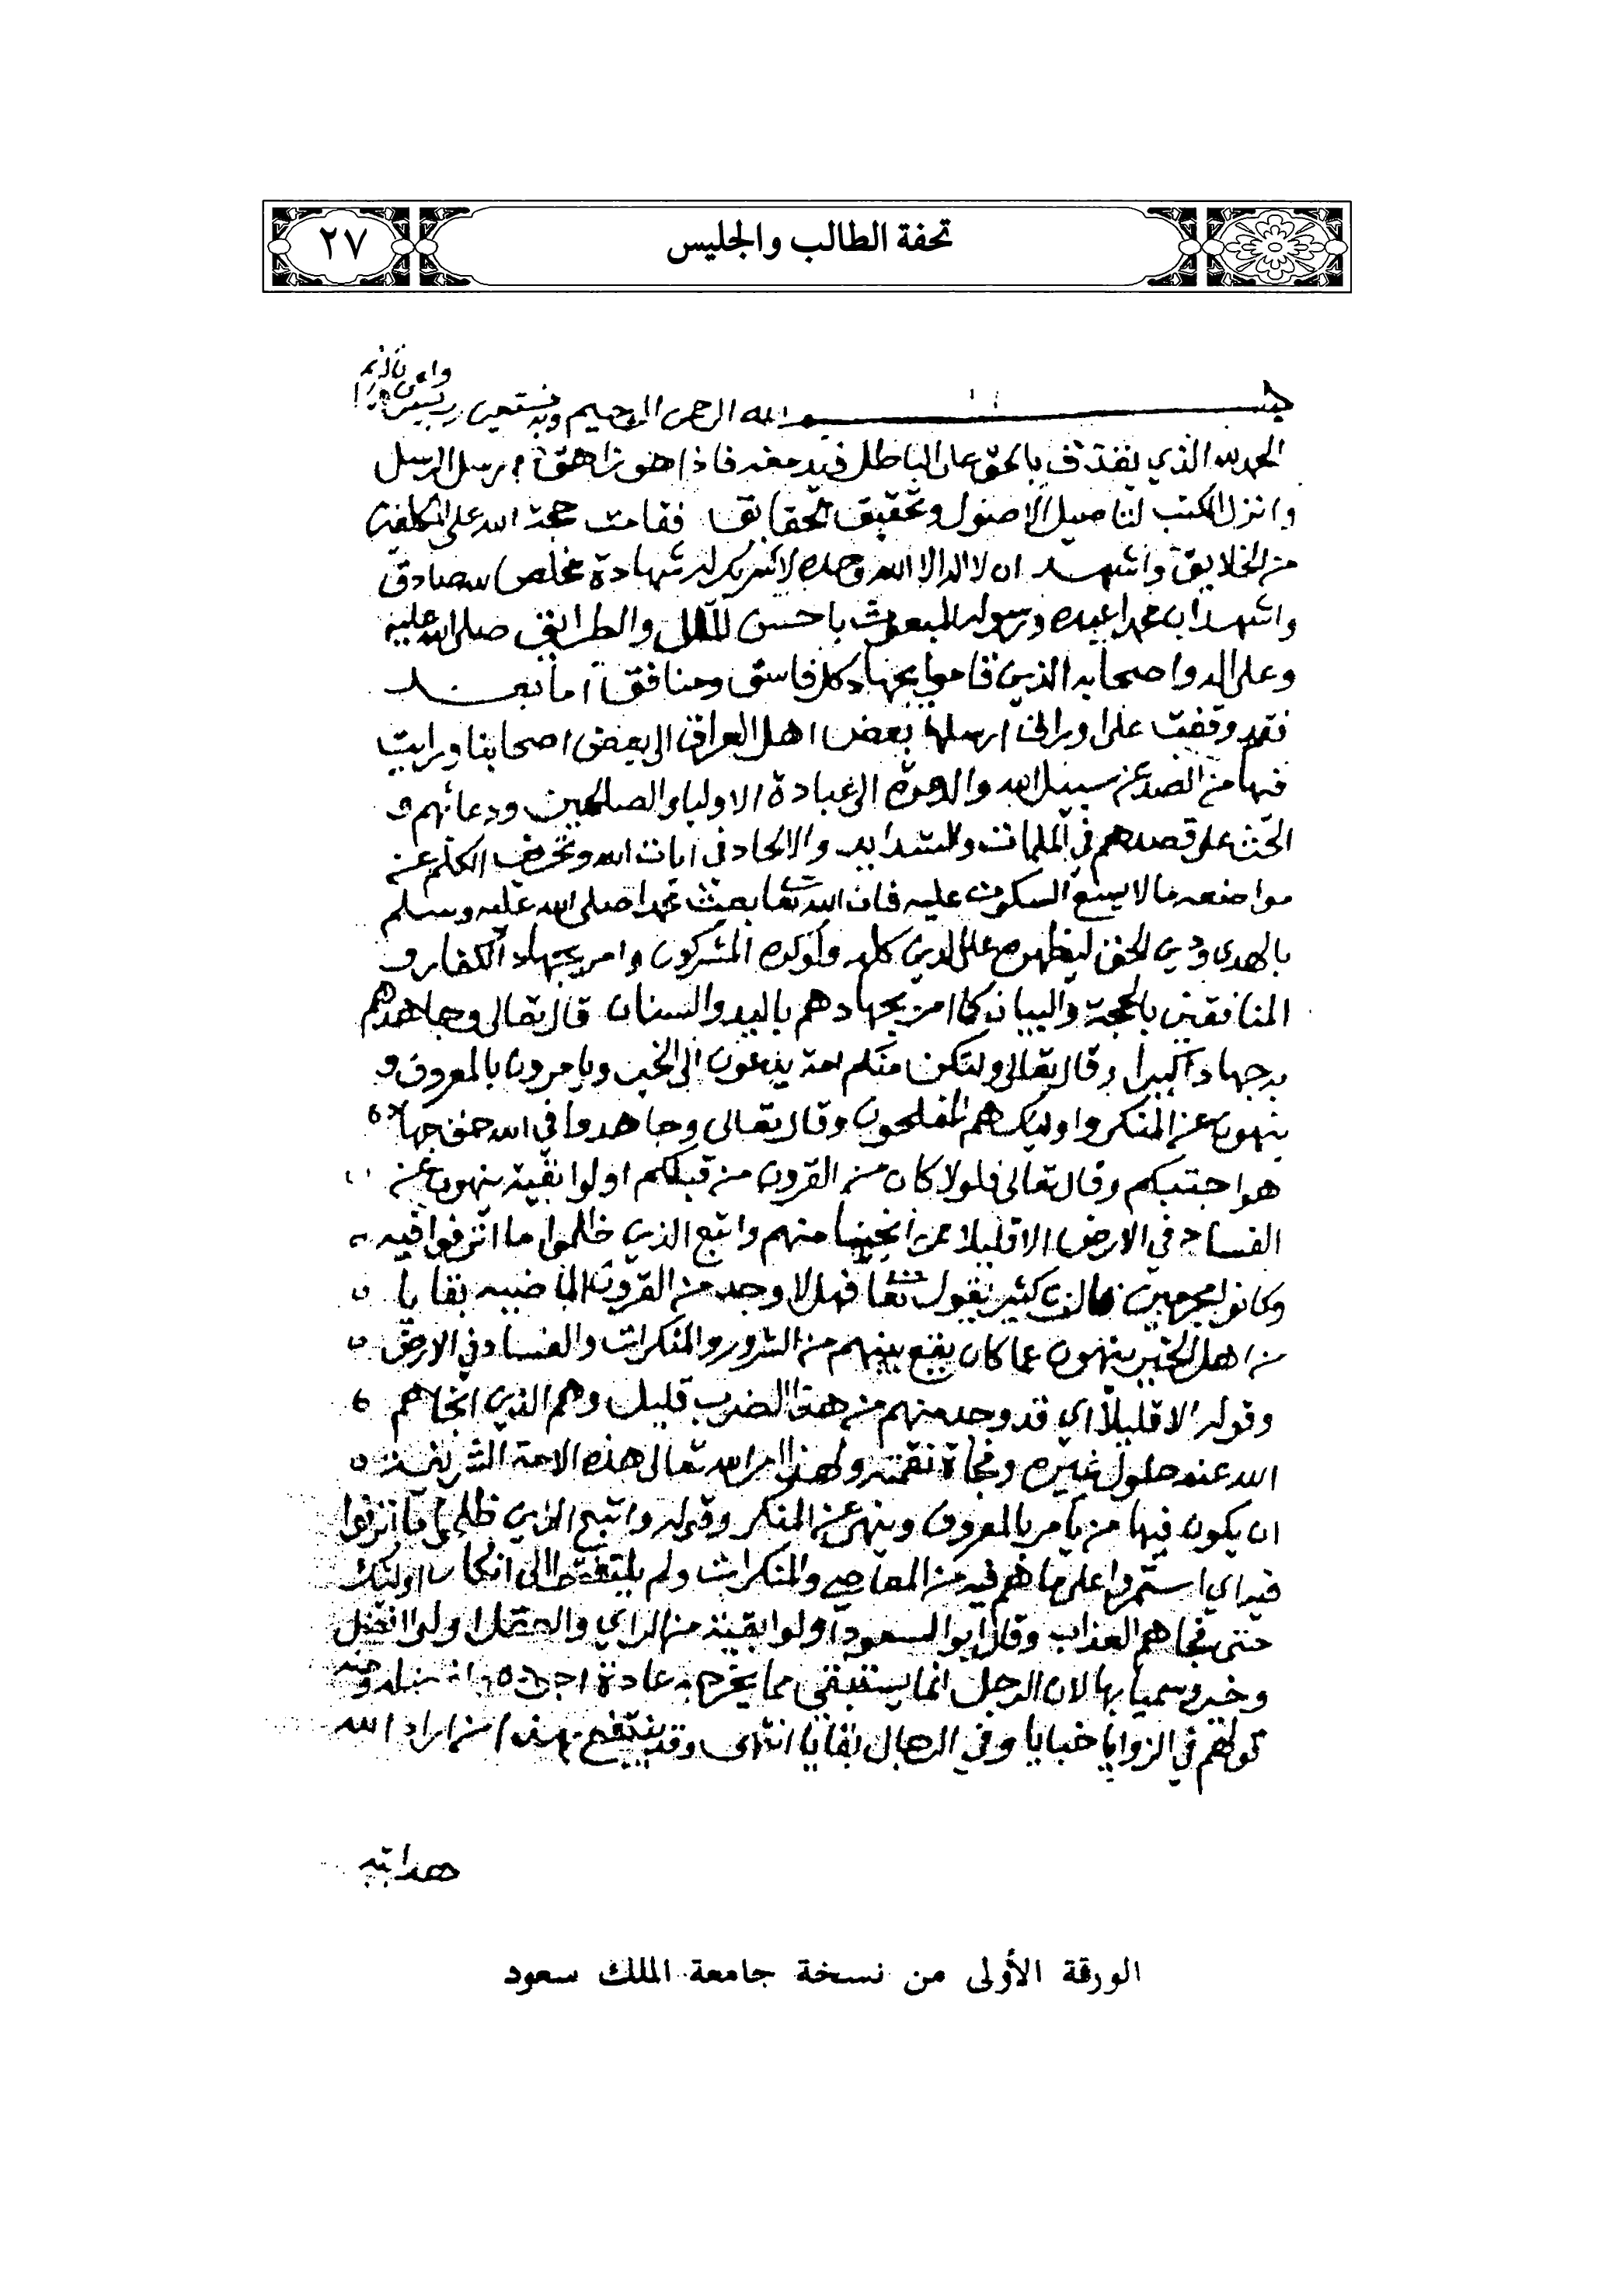 تحفة الطالب والجليس
٢٧
بسم الله الرحمن الرحيم وبه نستعين رب يسر
الحمد لله الذي يقذف بالحق على الباطل فيدمغه فاذا هو زاهق ارسل الرسل
وانزل الكتب لتاصيل الاصول وتحقيق الحقايق فقامت حجة الله على المكلفين
من الخلايق واشهد ان لا اله الا الله وحده لا شريك له شهادة مخلص لله صادق
واشهد ان محمدا عبده ورسوله المبعوث باحسن الملل والطرايق صلى الله عليه
وعلى اله واصحابه الذين قاموا بجهاد كل فاسق ومنافق اما بعد
فقد وقفت على اوراق ارسلها بعض اهل العراق الى بعض اصحابنا ورايت
فيها من الصد عن سبيل الله والدعوة الى عبادة الاوليا والصالحين ودعائهم و
الحث على قصدهم في الملمات والشدايد والالحاد في ايات الله وتحريف الكلم عن
مواضعه ما لا يسع السكوت عليه فان الله تعا بعث محمدا صلى الله عليه وسلم
بالهدى ودين الحق ليظهره على الدين كله ولو كره المشركون وامر بجهاد الكفار و
المنافقين بالحجة والبيان كما امر بجهادهم باليد والسنان قال تعالى وجاهدهم
به جهادا كبيرا وقال تعالى ولتكن منكم امة يدعون الى الخير ويامرون بالمعروف و
ينهون عن المنكر واوليك هم المفلحون وقال تعالى وجاهدوا في الله حق جهاده
هو اجتبكم وقال تعالى فلولا كان من القرون من قبلكم اولوا بقية ينهون عن
الفساد في الارض الا قليلا ممن انجينا منهم واتبع الذين ظلموا ما اترفوا فيه
وكانوا مجرمين قال ابن كثير يقول تعا فهلا وجد من القرون الماضيه بقايا
من اهل الخير ينهون عما كان يقع بينهم من الشرور والمنكرات والفساد في الارض
وقوله الا قليلا اي قد وجد منهم من هذا الضرب قليل وهم الذين انجاهم
الله عند حلول غيره وفجاة نقمته ولهذا امر الله تعالى هذه الامة الشريفة
ان يكون فيها من يامر بالمعروف وينهى عن المنكر وقوله واتبع الذين ظلموا ما اترفوا
فيه اي استمروا على ما هم فيه من المعاصي والمنكرات ولم يلتفتوا الى انكار اولئك
حتى فجاهم العذاب وقال ابو السعود اولوا بقية من الراي والعقل او لوا الفضل
وخير وسميا بها لان الرجل انما يستبقي مما يخرجه عادة اجوده وافضله ومنه
قولهم في الزوايا خبايا وفي الرجال بقايا انتهى وقد ينتفع بهذا من اراد الله
هدايته
الورقة الأولى من نسخة جامعة الملك سعود